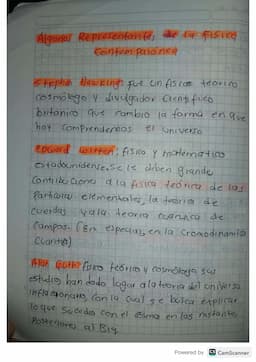 Algunos Representantes de la física
Contemporánea
Stephen Hawking: fue un físico teórico
cosmólogo y divulgador científico
británico que cambio la forma en que
hoy comprendemos el universo
Edward Witten: físico y matemático
estadounidense. se le deben grande
contribuciones a la física teórica de las
partículas elementales, la teoría de
cuerdas y a la teoría cuántica de
campos. (En especial, en la cromodinámica
cuántica)
Alan Guth: físico teórico y cosmólogo sus
estudio han dado lugar a la teoría del universo
inflacionario, con la cual se busca explicar
lo que sucedió con el cosmo en los instantes
posteriores al Big
Powered by CS CamScanner